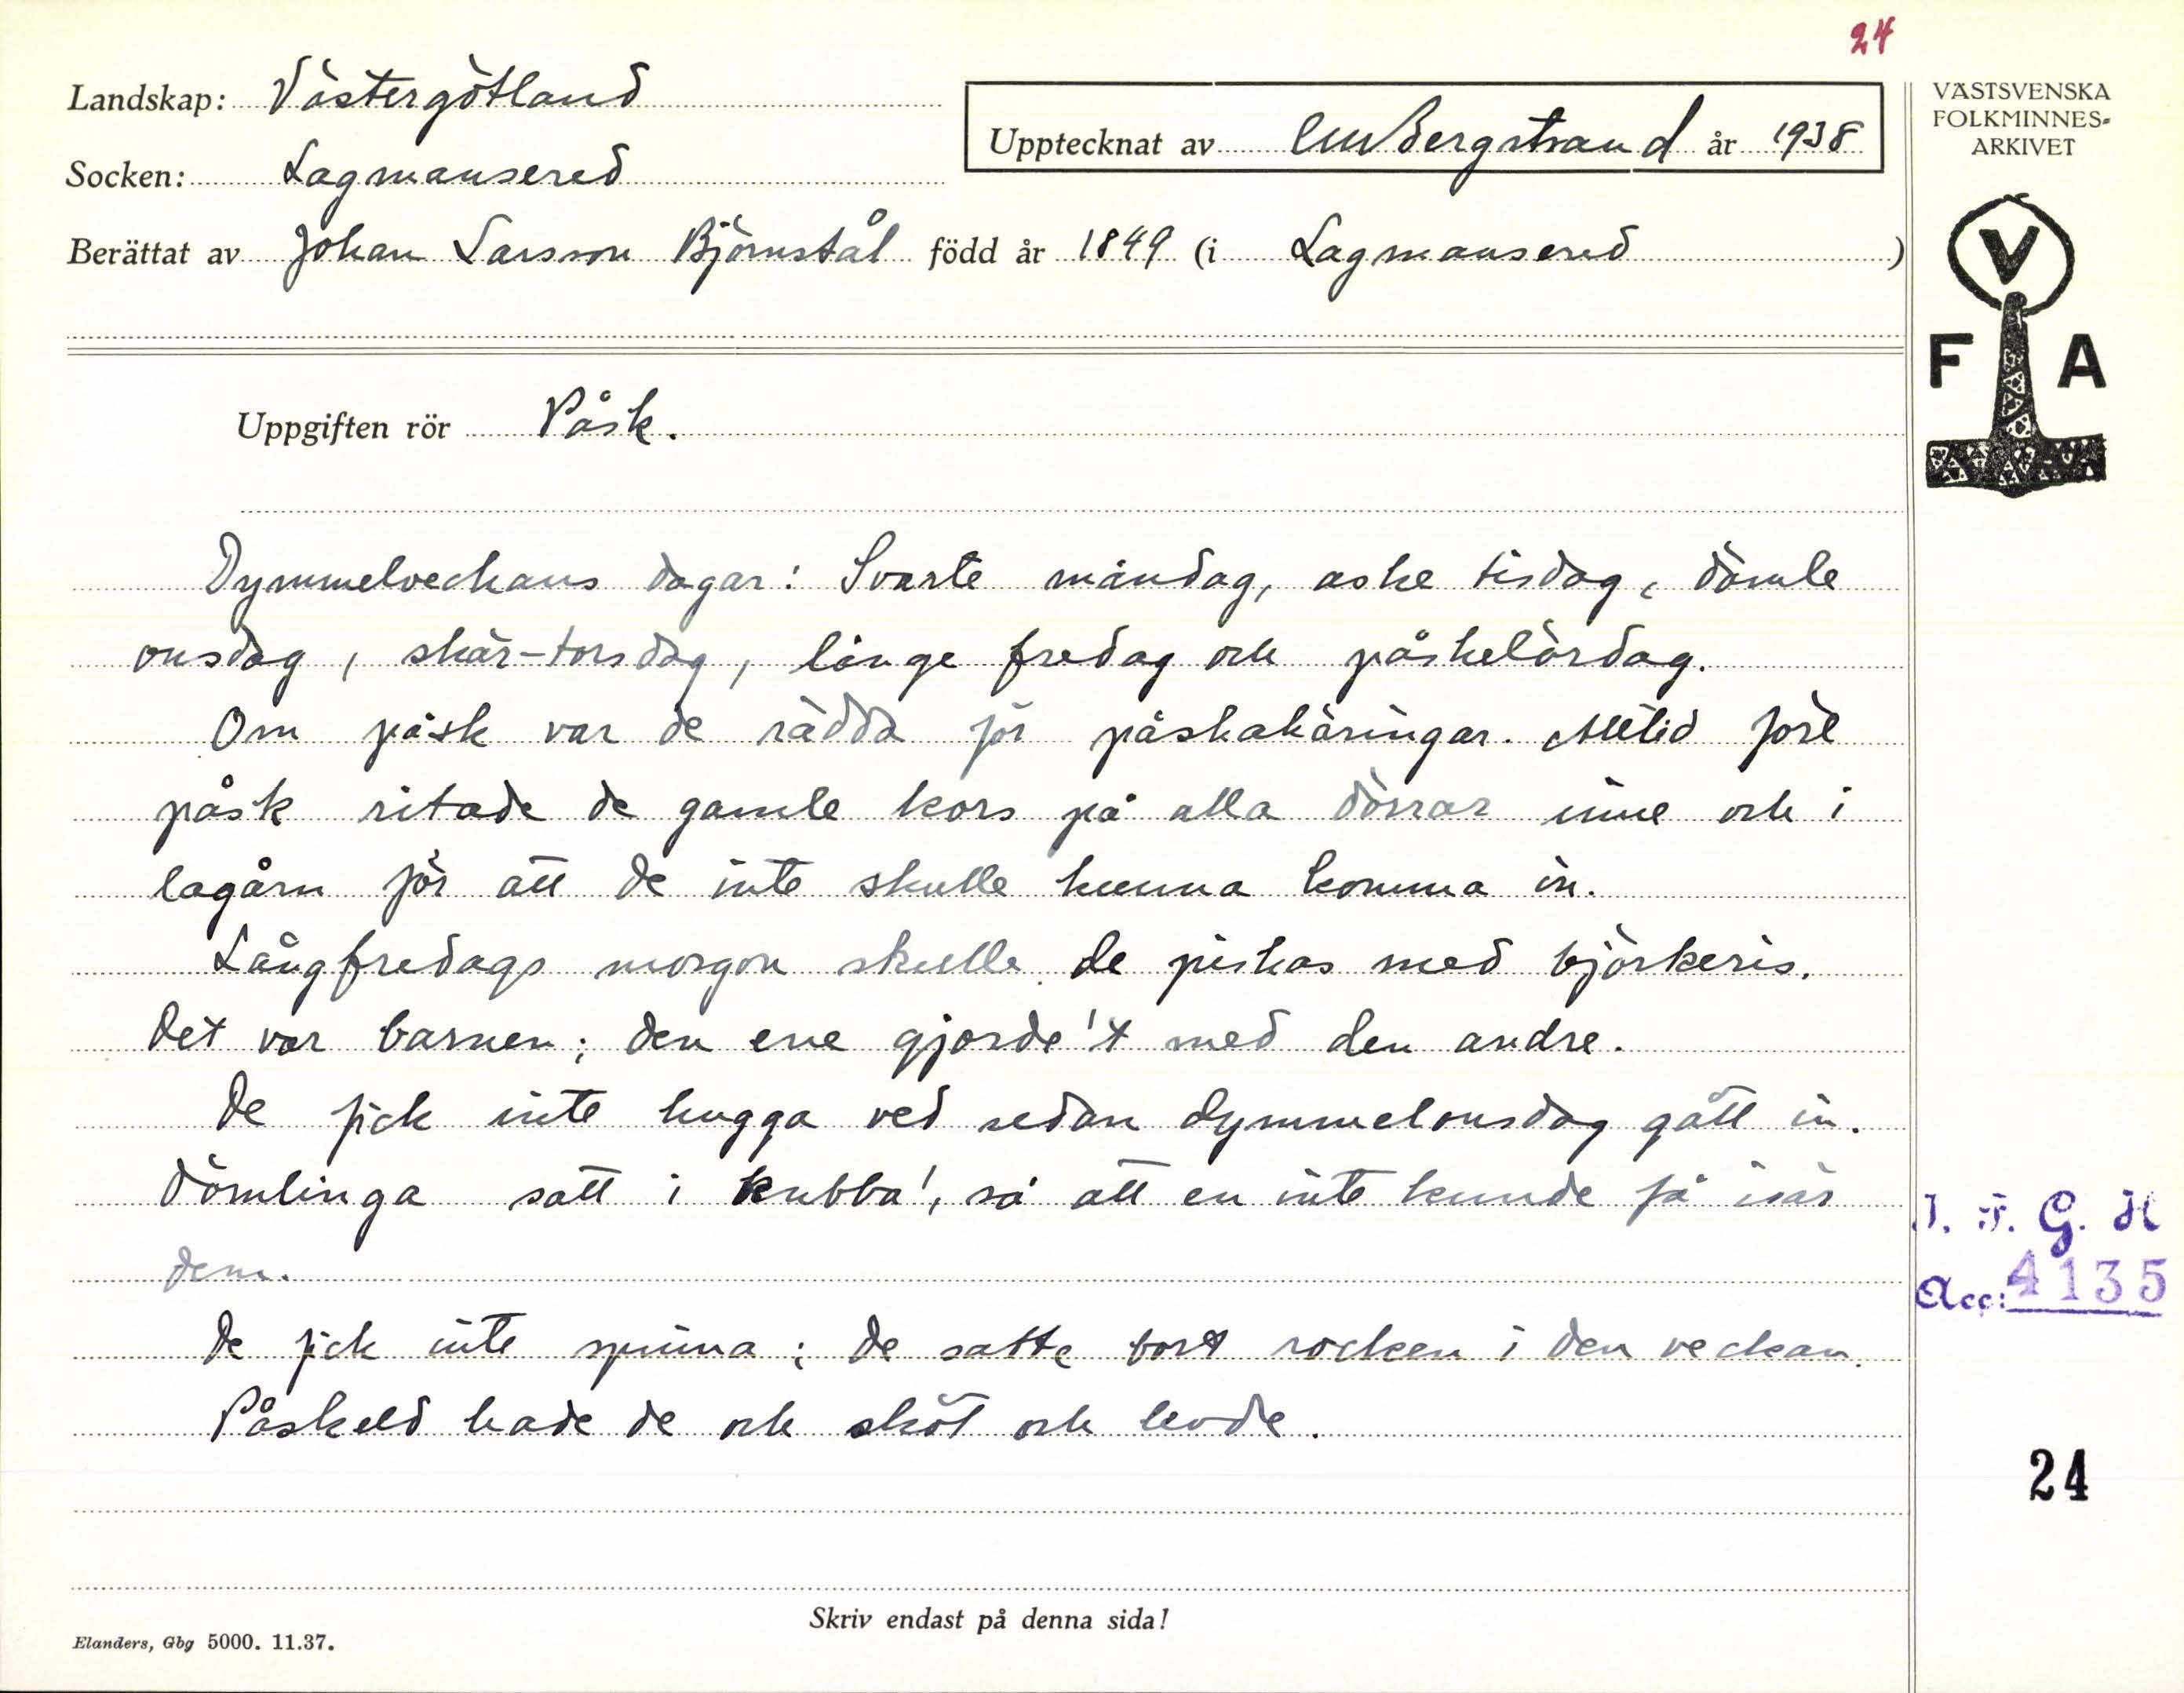 24
Landskap: Västergötland
Upptecknat av CMBergstrand år 1938
Socken: Lagmansered
Berättat av Johan Larsson Björnstål född år 1849 (i Lagmansered)
Uppgiften rör Påsk.
Dymmelveckans dagar: Svarte måndag, aske tisdag, dömle
onsdag, skär-torsdag, långe fredag och påskelördag.
Om påsk var de rädda för påskakäringar. Alltid före
påsk ritade de gamle kors på alla dörrar inne och i
lagårn för att de inte skulle kunna komma in.
Långfredags morgon skulle de piskas med björkeris.
Det var barnen; den ene gjorde't med den andre.
De fick inte hugga ved sedan dymmelonsdag gått in.
Dömlinga satt i kubba', så att en inte kunde få isär
dem.
De fick inte spinna; de satte bort rocken i den veckan.
Påskeld hade de och sköt och levde.
Skriv endast på denna sida!
Elanders, Gbg 5000. 11.37.
VÄSTSVENSKA
FOLKMINNES-
ARKIVET
V
F A
I. F. G. H
Acc: 4135
24